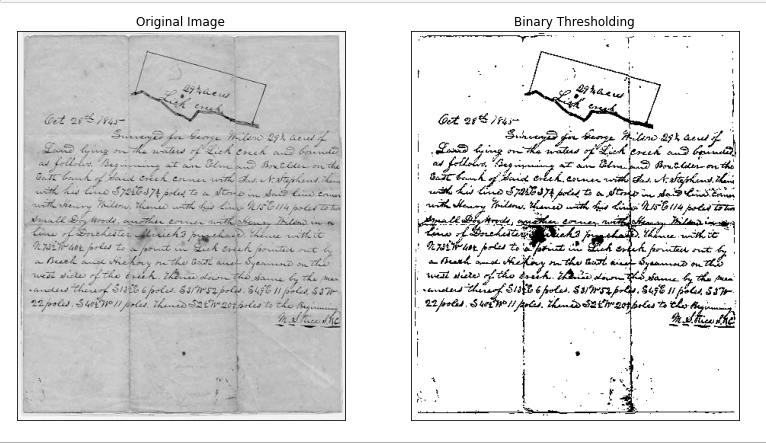 Original Image
Binary Thresholding
29¼ acres
Lick creek
Oct 28th 1845
Surveyed for George Wilson 29¼ acres of
Land lying on the waters of Lick creek and bounded
as follows. Beginning at an Elm and Box Elder on the
East bank of said creek corner with Jas. N. Stephens, thence
with his line S72½E 37¼ poles to a Stone in said line corner
with Henry Wilson, thence with his line N15E 114 poles to two
Small Dogwoods, another corner with Henry Wilson in a
line of Dorchester purchase. Thence with it
N73½W 40½ poles to a point in Lick creek pointed out by
a Beech and Hickory on the East and Sycamore on the
west sides of the creek. Thence down the same by the me-
anders thereof S13½E 6 poles. S31W 52 poles. S49E 11 poles. S5W
22 poles. S40½W 11 poles. Thence S2½W 20 poles to the Beginning
29¼ acres
Lick creek
Oct 28th 1845
Surveyed for George Wilson 29¼ acres of
Land lying on the waters of Lick creek and bounded
as follows. Beginning at an Elm and Box Elder on the
East bank of said creek corner with Jas. N. Stephens, thence
with his line S72½E 37¼ poles to a Stone in said line corner
with Henry Wilson, thence with his line N15E 114 poles to two
Small Dogwoods, another corner with Henry Wilson in a
line of Dorchester purchase. Thence with it
N73½W 40½ poles to a point in Lick creek pointed out by
a Beech and Hickory on the East and Sycamore on the
west sides of the creek. Thence down the same by the me-
anders thereof S13½E 6 poles. S31W 52 poles. S49E 11 poles. S5W
22 poles. S40½W 11 poles. Thence S2½W 20 poles to the Beginning